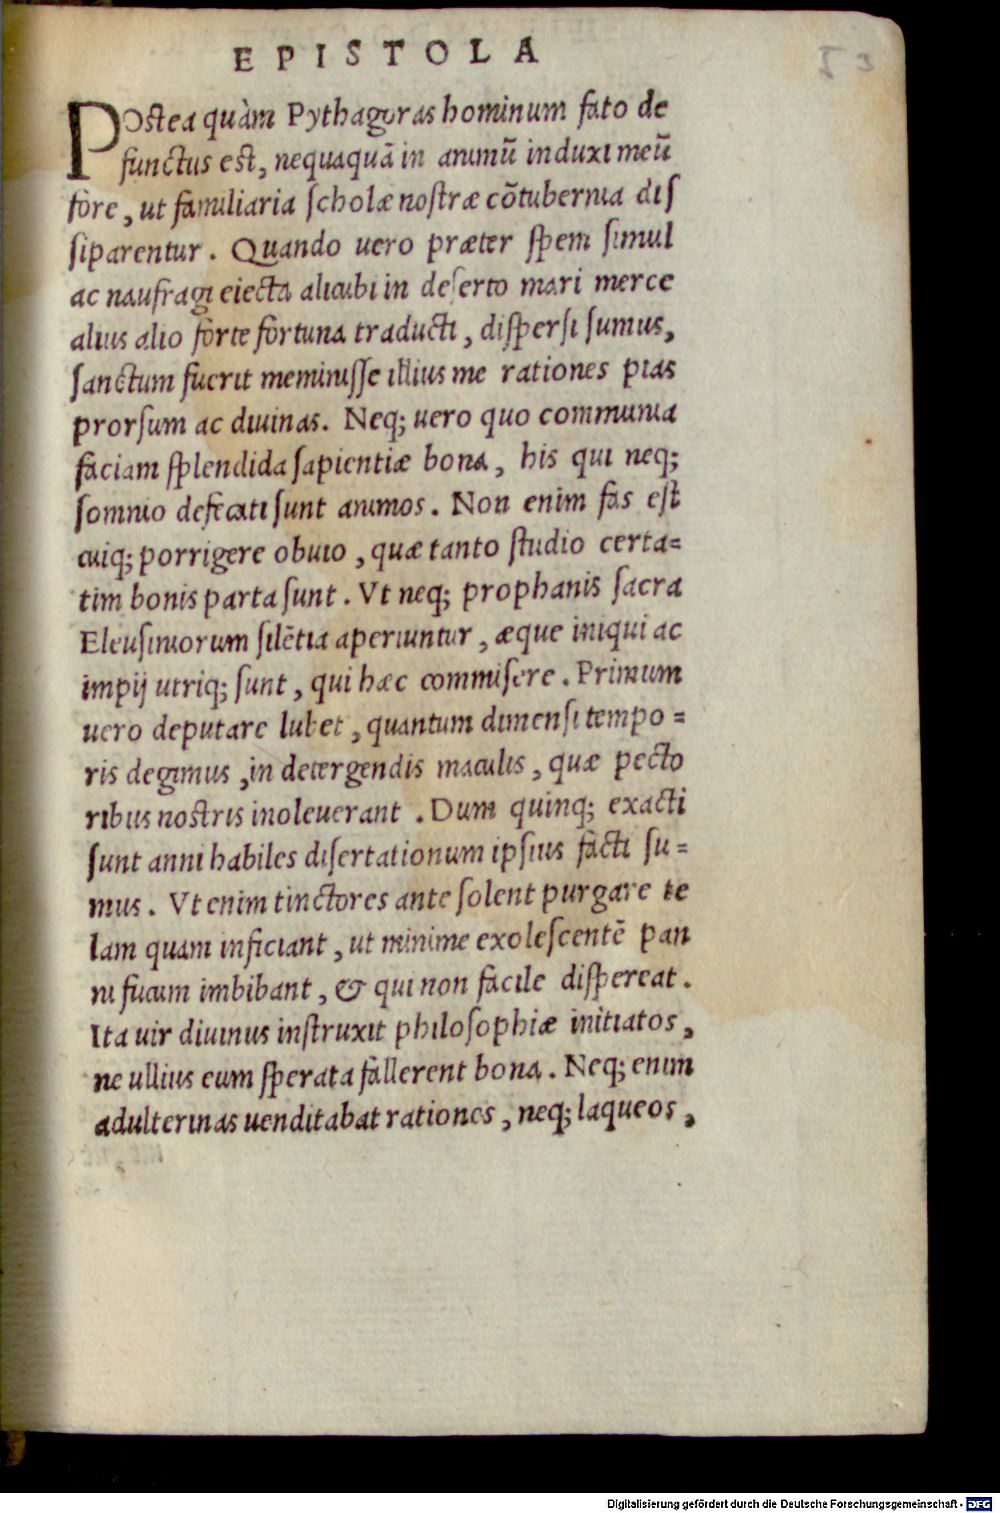 EPISTOLA
53
POstea quàm Pythagoras hominum fato de
functus est, nequaquā in animū induxi meū
fore, ut familiaria ſcholæ noſtræ cōtubernia diſ
ſiparentur. Quando uero præter ſpem ſimul
ac naufragi eiecta alicubi in deſerto mari merce
alius alio forte fortuna traducti, diſperſi ſumus,
ſanctum fuerit meminiſſe illius me rationes pias
prorſum ac diuinas. Neq; uero quo communia
faciam ſplendida ſapientiæ bona, his qui neq;
ſomnio defecati ſunt animos. Non enim fas eſt
cuiq; porrigere obuio, quæ tanto ſtudio certa=
tim bonis parta ſunt. Vt neq; prophanis ſacra
Eleuſiniorum ſilētia aperiuntur, æque iniqui ac
impij utriq; ſunt, qui hæc commiſere. Primum
uero deputare lubet, quantum dimenſi tempo=
ris degimus, in detergendis maculis, quæ pecto
ribus nostris inoleuerant. Dum quinq; exacti
ſunt anni habiles diſertationum ipſius facti ſu=
mus. Vt enim tinctores ante ſolent purgare te
lam quam inficiant, ut minime exoleſcentē pan
ni fucum imbibant, & qui non facile diſpereat.
Ita uir diuinus inſtruxit philoſophiæ initiatos,
ne ullius eum ſperata fallerent bona. Neq; enim
adulterinas uenditabat rationes, neq; laqueos,
Digitalisierung gefördert durch die Deutsche Forschungsgemeinschaft - DFG